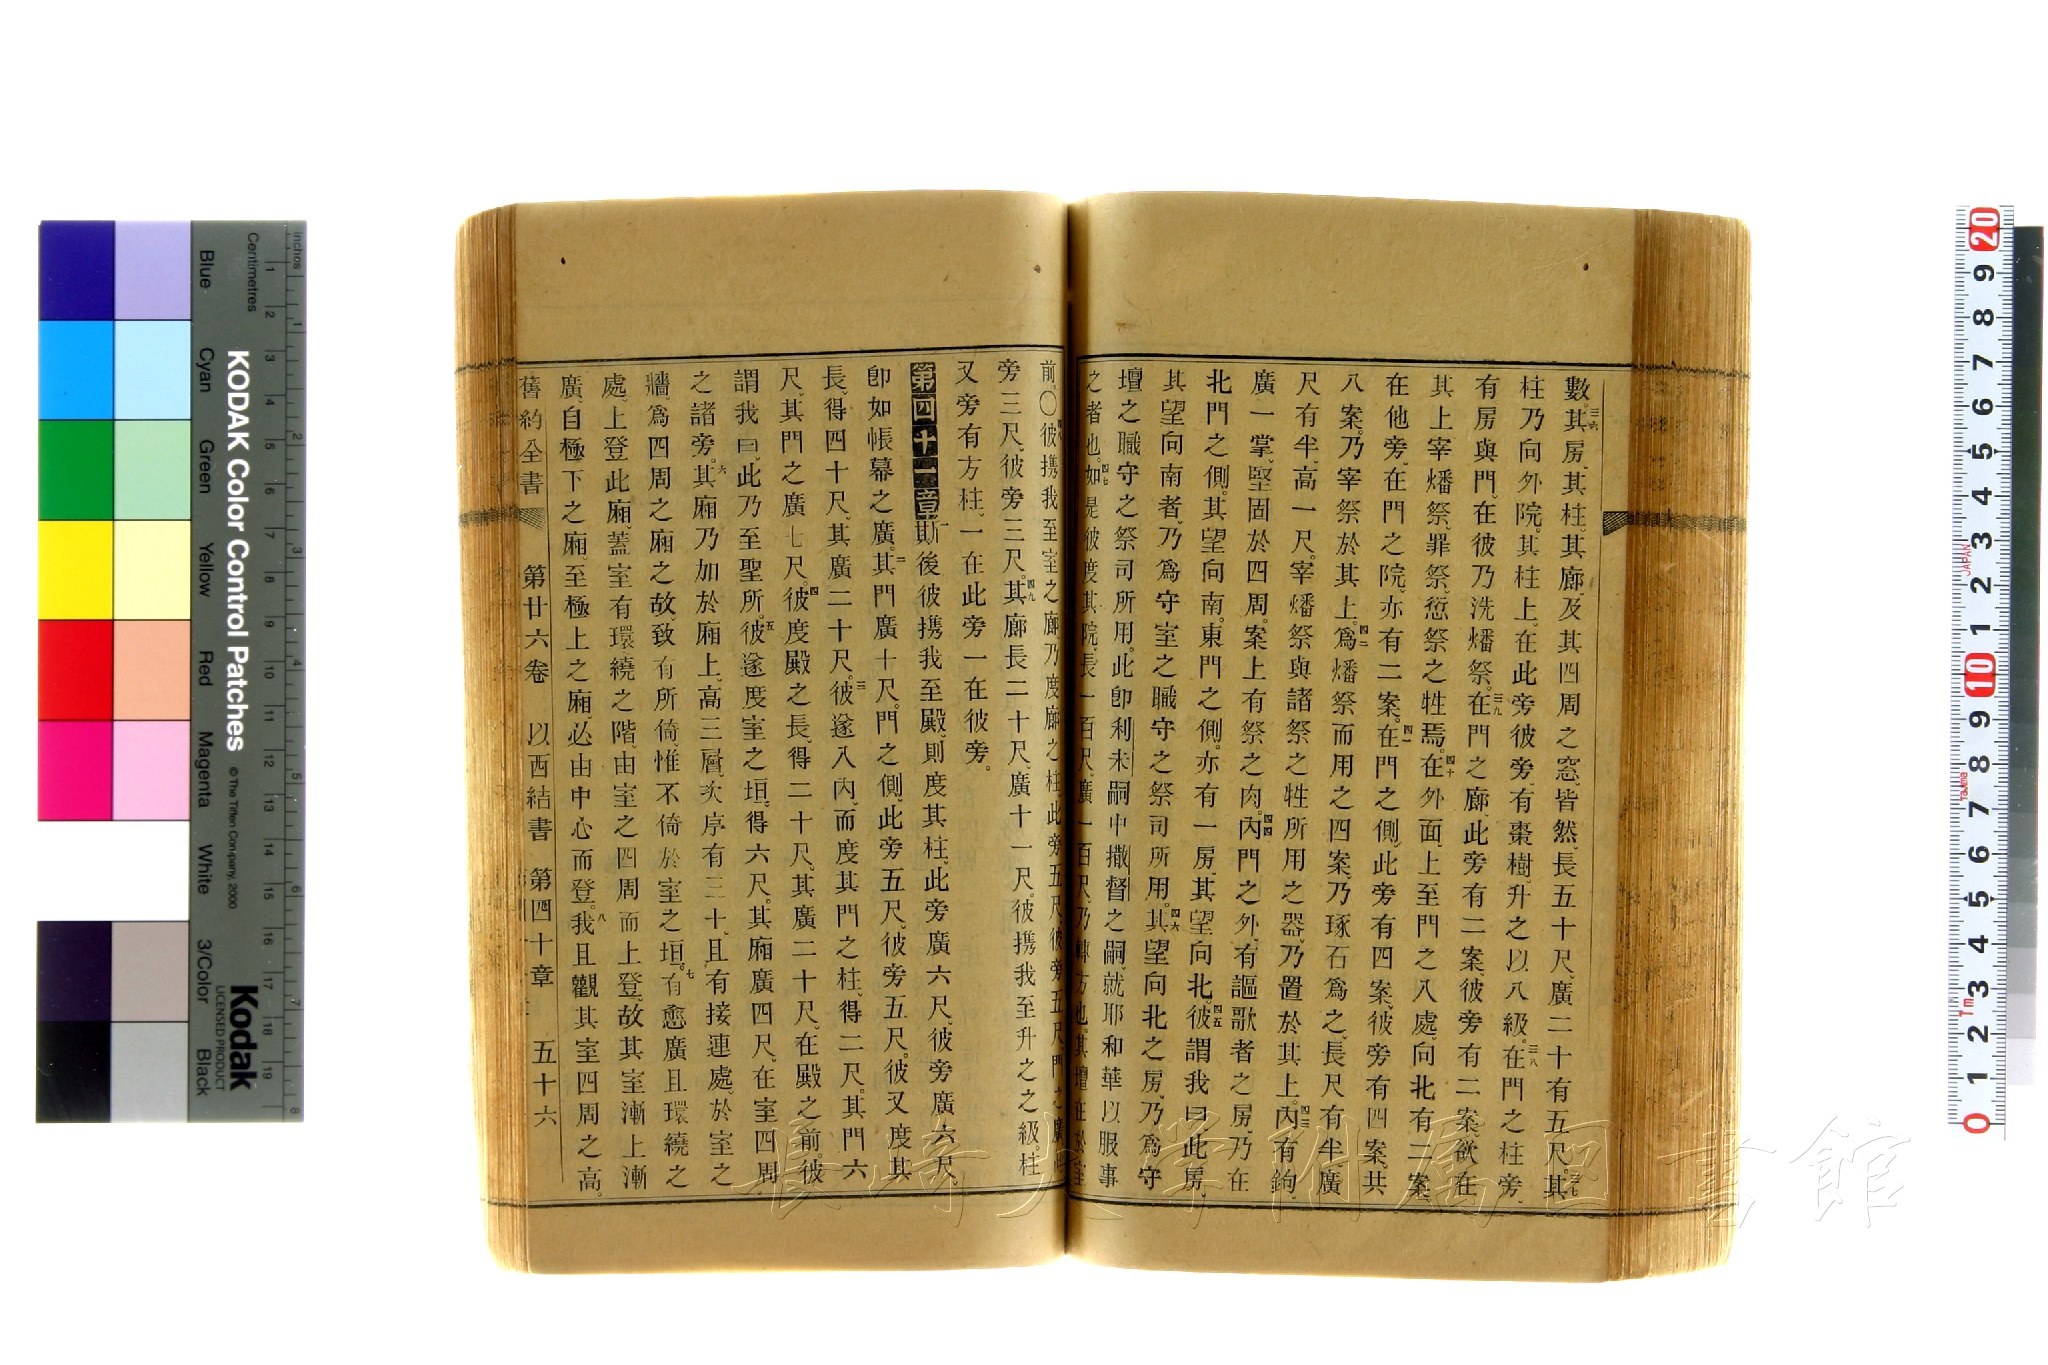 數。其三六房、其柱、其廊、及其四周之窓、皆然、長五十尺、廣二十有五尺。其三七
柱乃向外院。其柱上。在此旁彼旁、有棗樹、升之以八級。在三八門之柱旁、
有房與門。在彼乃洗燔祭。在三九門之廊、此旁有二案、彼旁有二案、欲在
其上宰燔祭、罪祭、愆祭之牲焉。在四十外面、上至門之入處、向北有二案、
在他旁、在門之院、亦有二案。在四一門之側、此旁有四案、彼旁有四案、共
八案、乃宰祭於其上。爲四二燔祭而用之四案、乃琢石爲之、長尺有半、廣
尺有半、高一尺。宰燔祭與諸祭之牲所用之器、乃置於其上。內四三有鉤、
廣一掌、堅固於四周。案上有祭之肉。內四四門之外、有謳歌者之房、乃在
北門之側。其望向南。東門之側、亦有一房、其望向北。彼四五謂我曰、此房、
其望向南者、乃爲守室之職守之祭司所用。其四六望向北之房、乃爲守
壇之職守之祭司所用。此卽利未嗣中撒督之嗣、就耶和華以服事
之者也。如四七是彼度其院、長一百尺、廣一百尺、乃轉方也。其壇在於室
前。〇彼四八携我至室之廊、乃度廊之柱、此旁五尺、彼旁五尺、門之廣、此
旁三尺、彼旁三尺。其四九廊長二十尺、廣十一尺。彼携我至升之之級。柱
又旁有方柱、一在此旁一在彼旁。
第四十一章斯一後彼携我至殿、則度其柱、此旁廣六尺、彼旁廣六尺、
卽如帳幕之廣。其二門廣十尺。門之側、此旁五尺、彼旁五尺。彼又度其
長、得四十尺、其廣二十尺。彼三遂入內、而度其門之柱、得二尺。其門六
尺、其門之廣七尺。彼四度殿之長、得二十尺。其廣二十尺、在殿之前。彼
謂我曰、此乃至聖所。彼五遂度室之垣、得六尺。其廂廣四尺、在室四周
之諸旁。其六廂乃加於廂上、高三層、次序有三十、且有接連處、於室之
牆爲四周之廂之故、致有所倚、惟不倚於室之垣。有七愈廣且環繞之
處、上登此廂、蓋室有環繞之階、由室之四周而上登、故其室漸上漸
廣、自極下之廂、至極上之廂、必由中心而登。我八且觀其室四周之高。
舊約全書 第廿六卷 以西結書 第四十章 五十六
KODAK Color Control Patches
© The Tiffen Company, 2000
Kodak
LICENSED PRODUCT
Inches
Centimetres
Blue Cyan Green Yellow Red Magenta White 3/Color Black
1 2 3 4 5 6 7 8 9 10 11 12 13 14 15 16 17 18 19
1 2 3 4 5 6 7 8
20 9 8 7 6 5 4 3 2 1 10 9 8 7 6 5 4 3 2 1 0
JAPAN
Tajima
7m
長崎大学附属図書館